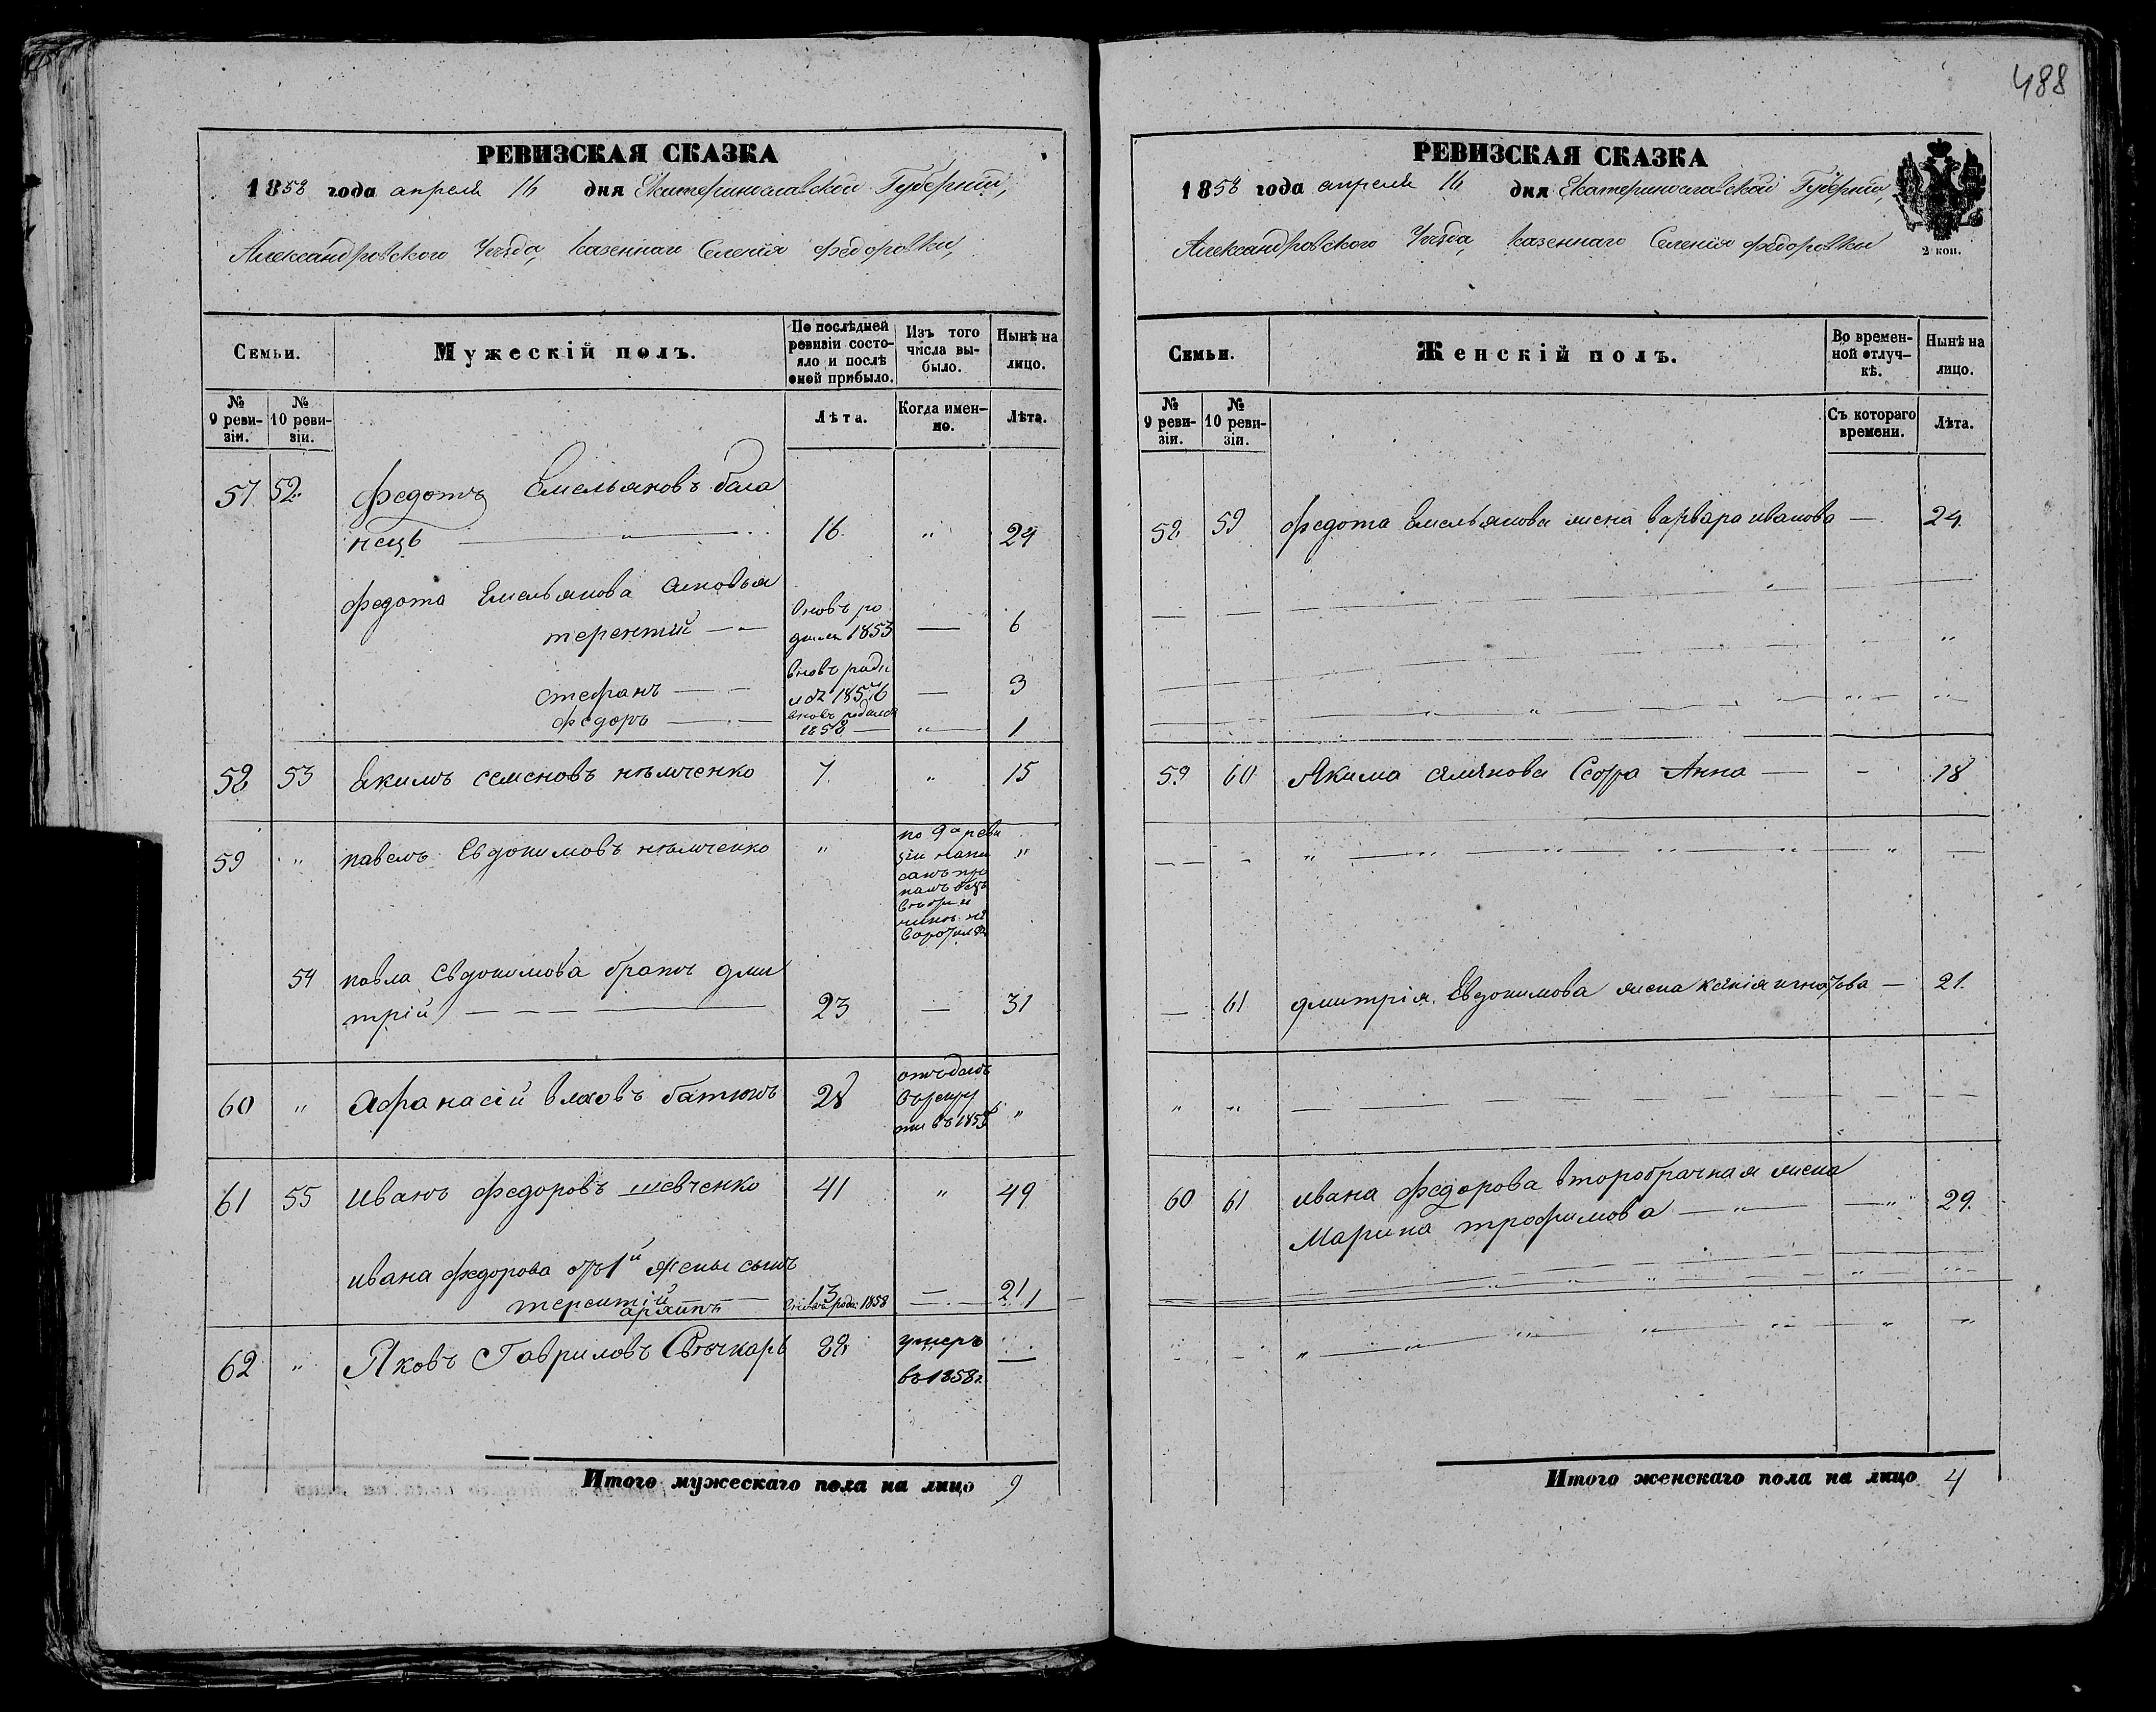 488
РЕВИЗСКАЯ СКАЗКА
1858 года апреля 16 дня Екатеринославской Губернии,
Александровского Уѣзда, казеннаго Селенія Федоровки,
Семьи.
Мужескій полъ.
По послѣдней ревизіи состо-
яло и послѣ
оной прибыло.
Изъ того
числа вы-
было.
Нынѣ на
лицо.
№
9 реви-
зіи.
№
10 реви-
зіи.
Лѣта.
Когда имен-
но.
Лѣта.
57 52. Федотъ Емельяновъ бала
нецъ 16. " 24
Федота Емельянова сыновья
терентий вновь ро
дился 1853 — 6
стефанъ вновь роди
1856 — 3
Федоръ вновь родился
1858 " 1
58 53 Якимъ семеновъ нѣмченко 7. " 15
59 " павелъ Евдокимовъ нѣмченко " по 9й реви
зіи напи
санъ "
54 павла Евдокимова братъ дми
трій 23 — 31
60 " Афанасій власовъ 28 отъданъ
въ рекру
ты въ 185 "
61 55 Иванъ Федоровъ шевченко 41 " 49
ивана Федорова отъ 1й жены сынъ
терентій 13 — 21
архипъ вновь роди 1858 — 1
62 " Яковъ Гавриловъ 22 умеръ —
въ 1858г.
Итого мужескаго пола на лицо 9
РЕВИЗСКАЯ СКАЗКА
1858 года апреля 16 дня Екатеринославской Губернии,
Александровского Уѣзда, казеннаго Селенія Федоровки
2 коп.
Семьи.
Женскій полъ.
Во времен-
ной отлуч-
кѣ.
Нынѣ на
лицо.
№
9 реви-
зіи.
№
10 реви-
зіи.
Съ котораго
времени.
Лѣта.
58 59 Федота Емельянова жена варвара иванова — 24.
59 60 Якима семенова Сестра Анна — 18
— 61 дмитрія Евдокимова жена — 21.
60 61 ивана Федорова второбрачная жена
Марина трофимова — 29.
Итого женскаго пола на лицо 4